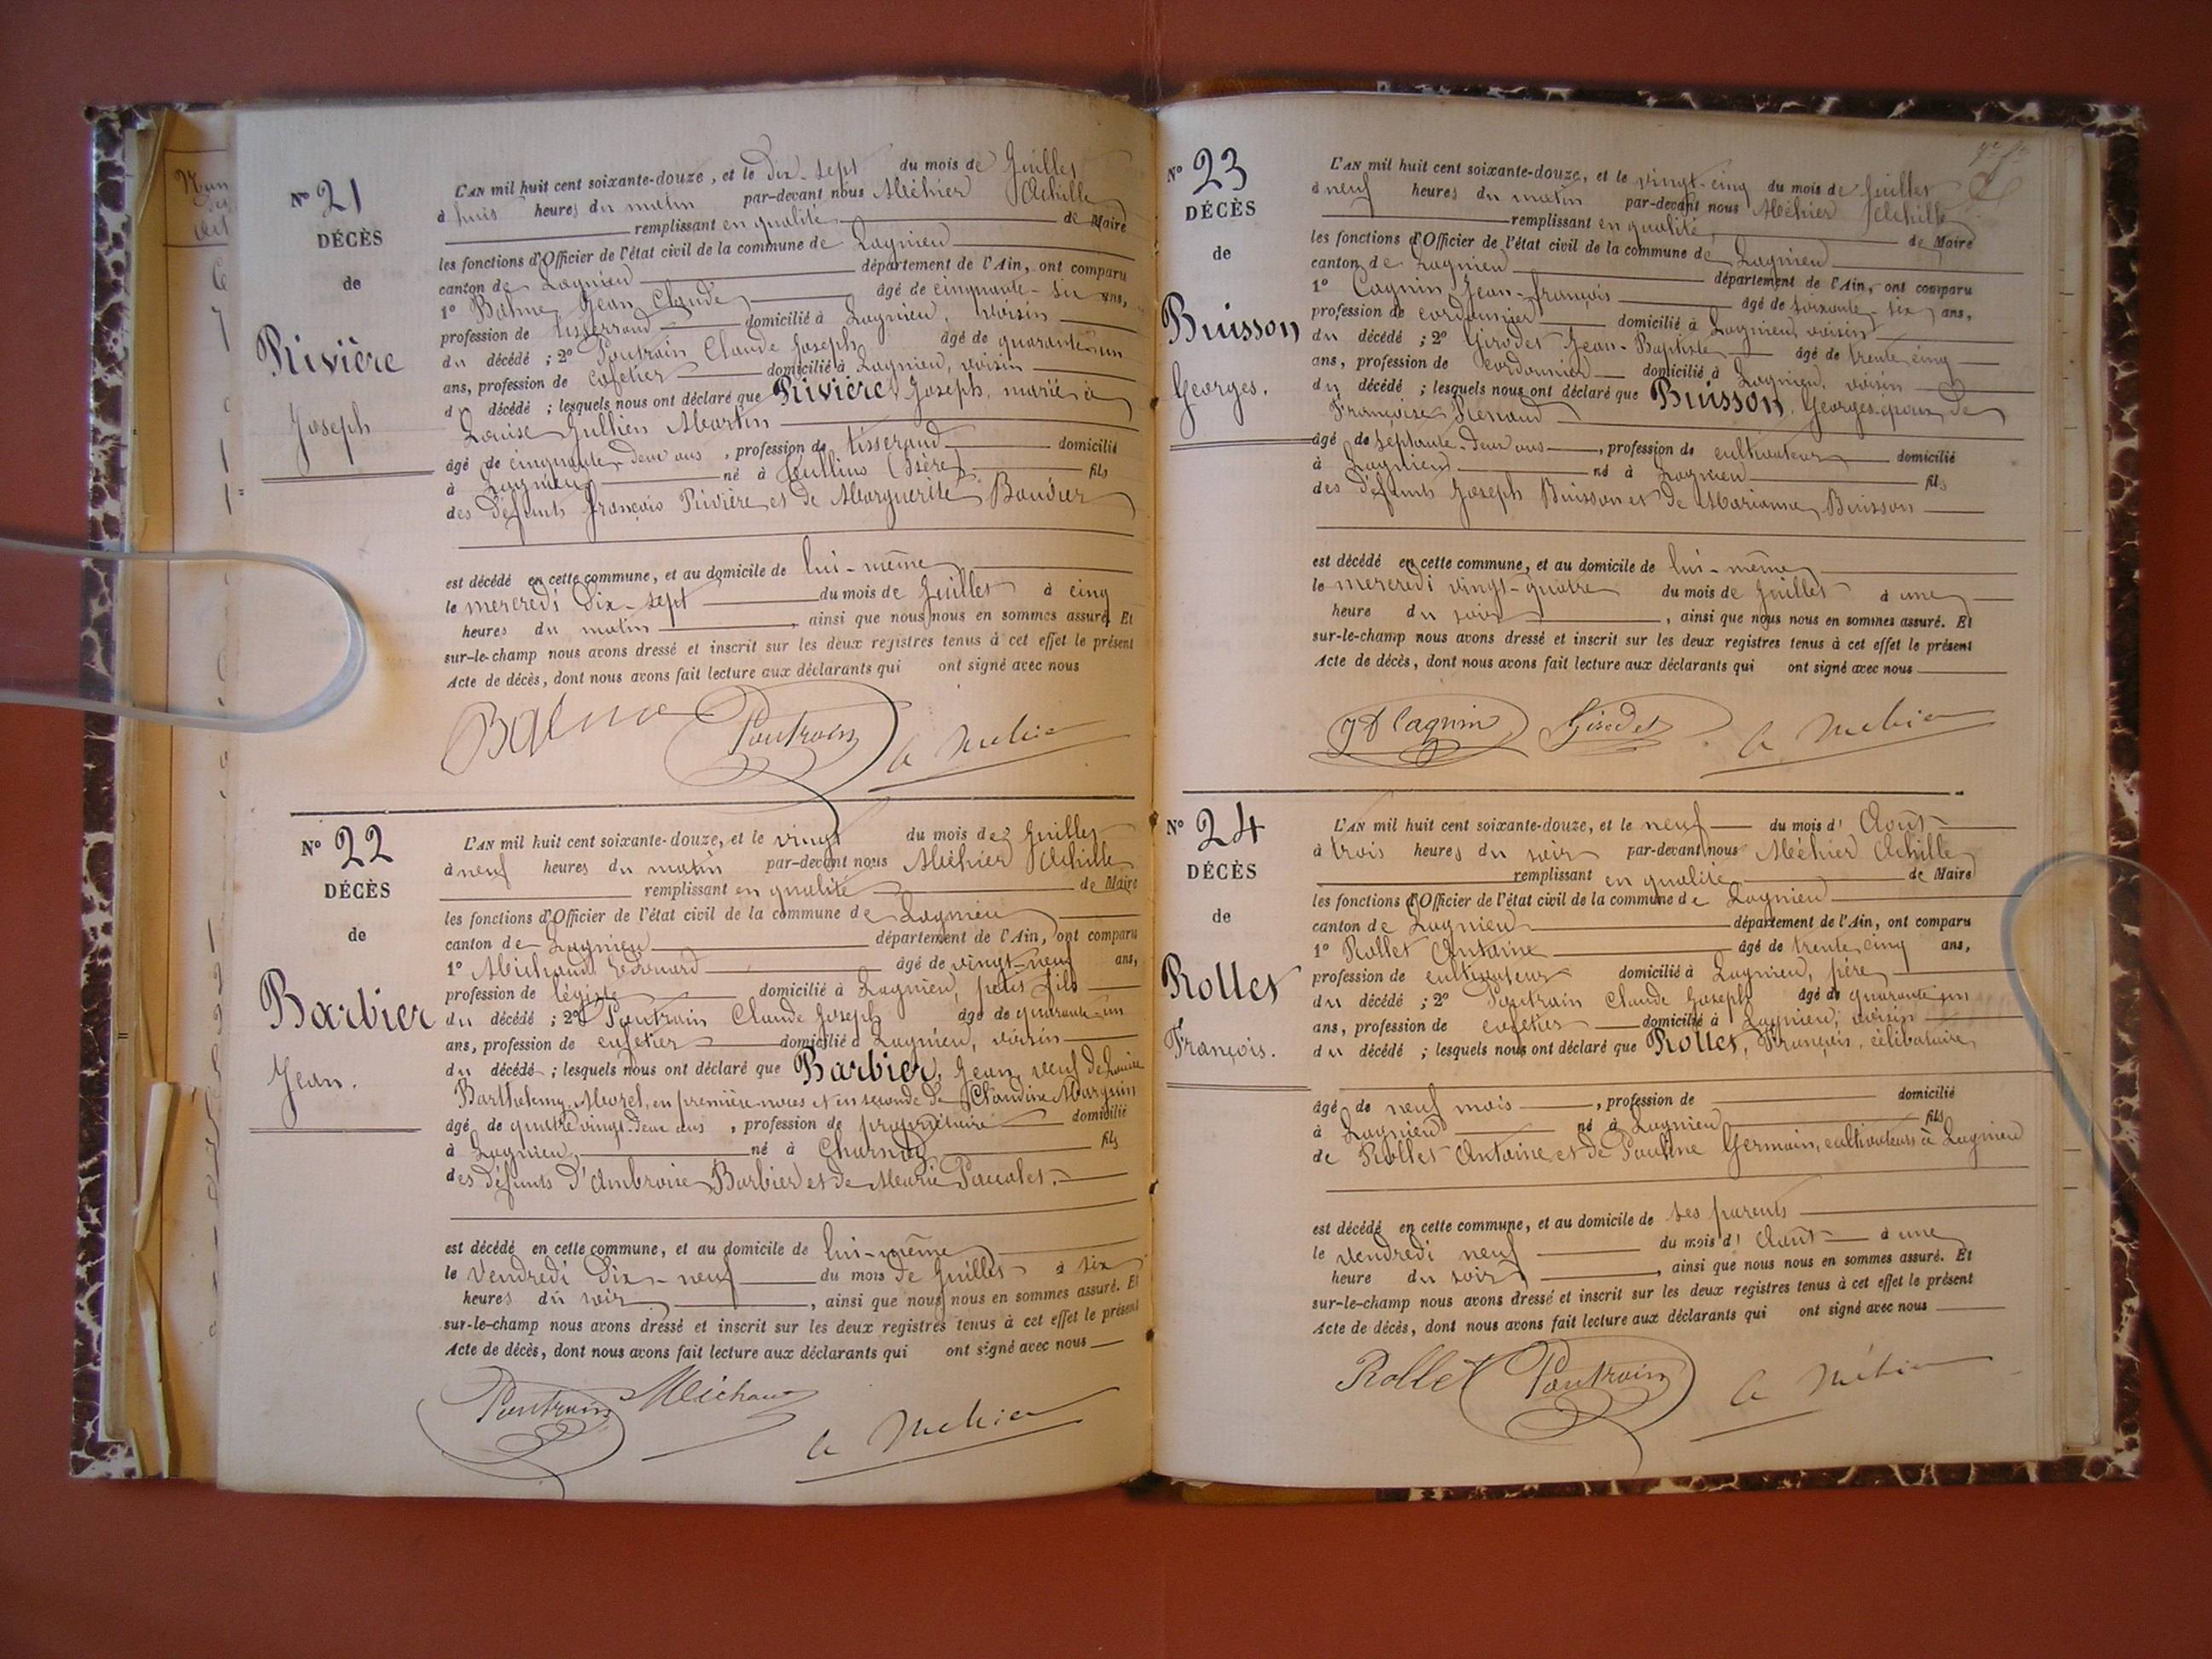 N° 21
DÉCÈS
de
Rivière
Joseph
L'AN mil huit cent soixante-douze, et le dix-sept du mois de Juillet
à huit heures du matin par-devant nous Méhier Achille
remplissant en qualité de Maire
les fonctions d'Officier de l'état civil de la commune de Lagnieu
canton de Lagnieu département de l'Ain, ont comparu
1° Balme Jean Claude âgé de cinquante-six ans,
profession de tisserand domicilié à Lagnieu, voisin
du décédé ; 2° Poutrain Claude Joseph âgé de quarante-un
ans, profession de cafetier domicilié à Lagnieu, voisin
du décédé ; lesquels nous ont déclaré que Rivière Joseph, marié à
Louise Jullien Martin
âgé de cinquante-deux ans, profession de tisserand domicilié
à Lagnieu né à (Isère) fils
des défunts François Rivière et de Marguerite Bouvier
est décédé en cette commune, et au domicile de lui-même
le mercredi dix-sept du mois de Juillet à cinq
heures du matin, ainsi que nous nous en sommes assuré. Et
sur-le-champ nous avons dressé et inscrit sur les deux registres tenus à cet effet le présent
Acte de décès, dont nous avons fait lecture aux déclarants qui ont signé avec nous
Balme Poutrain A Méhier
N° 22
DÉCÈS
de
Barbier
Jean.
L'AN mil huit cent soixante-douze, et le vingt du mois de Juillet
à neuf heures du matin par-devant nous Méhier Achille
remplissant en qualité de Maire
les fonctions d'Officier de l'état civil de la commune de Lagnieu
canton de Lagnieu département de l'Ain, ont comparu
1° Michaud Edouard âgé de vingt-neuf ans,
profession de légiste domicilié à Lagnieu, petit fils
du décédé ; 2° Poutrain Claude Joseph âgé de quarante-un
ans, profession de cafetier domicilié à Lagnieu, voisin
du décédé ; lesquels nous ont déclaré que Barbier, Jean, veuf de Louise
Barthelemy Morel, en première noces et en seconde de Claudine Marguin
âgé de quatre vingt-deux ans, profession de propriétaire domicilié
à Lagnieu, né à Charnoz fils
des défunts d'Ambroise Barbier et de Marie Paccalet.
est décédé en cette commune, et au domicile de lui-même
le Vendredi dix-neuf du mois de Juillet à six
heures du soir, ainsi que nous nous en sommes assuré. Et
sur-le-champ nous avons dressé et inscrit sur les deux registres tenus à cet effet le présent
Acte de décès, dont nous avons fait lecture aux déclarants qui ont signé avec nous
Poutrain Michaud A Méhier
N° 23
DÉCÈS
de
Buisson
Georges.
L'AN mil huit cent soixante-douze, et le vingt-cinq du mois de Juillet
à neuf heures du matin par-devant nous Méhier Achille
remplissant en qualité de Maire
les fonctions d'Officier de l'état civil de la commune de Lagnieu
canton de Lagnieu département de l'Ain, ont comparu
1° Cagnin Jean-François âgé de soixante-six ans,
profession de cordonnier domicilié à Lagnieu, voisin
du décédé ; 2° Girodet Jean-Baptiste âgé de trente cinq
ans, profession de cordonnier domicilié à Lagnieu, voisin
du décédé ; lesquels nous ont déclaré que Buisson, Georges, époux de
Françoise Renaud
âgé de septante-deux ans, profession de cultivateur domicilié
à Lagnieu né à Lagnieu fils
des défunts Joseph Buisson et de Marianne Buisson
est décédé en cette commune, et au domicile de lui-même
le mercredi vingt-quatre du mois de Juillet à une
heure du soir, ainsi que nous nous en sommes assuré. Et
sur-le-champ nous avons dressé et inscrit sur les deux registres tenus à cet effet le présent
Acte de décès, dont nous avons fait lecture aux déclarants qui ont signé avec nous
Cagnin Girodet A Méhier
N° 24
DÉCÈS
de
Rollet
François.
L'AN mil huit cent soixante-douze, et le neuf du mois d'Août
à trois heures du soir par-devant nous Méhier Achille
remplissant en qualité de Maire
les fonctions d'Officier de l'état civil de la commune de Lagnieu
canton de Lagnieu département de l'Ain, ont comparu
1° Rollet Antoine âgé de trente cinq ans,
profession de cultivateur domicilié à Lagnieu, père
du décédé ; 2° Poutrain Claude Joseph âgé de quarante-un
ans, profession de cafetier domicilié à Lagnieu, voisin
du décédé ; lesquels nous ont déclaré que Rollet, François, célibataire,
âgé de neuf mois, profession de domicilié
à Lagnieu né à Lagnieu fils
de Rollet Antoine et de Pauline Germain, cultivateurs à Lagnieu
est décédé en cette commune, et au domicile de ses parents
le vendredi neuf du mois d'Août à une
heure du soir, ainsi que nous nous en sommes assuré. Et
sur-le-champ nous avons dressé et inscrit sur les deux registres tenus à cet effet le présent
Acte de décès, dont nous avons fait lecture aux déclarants qui ont signé avec nous
Rollet Poutrain A Méhier